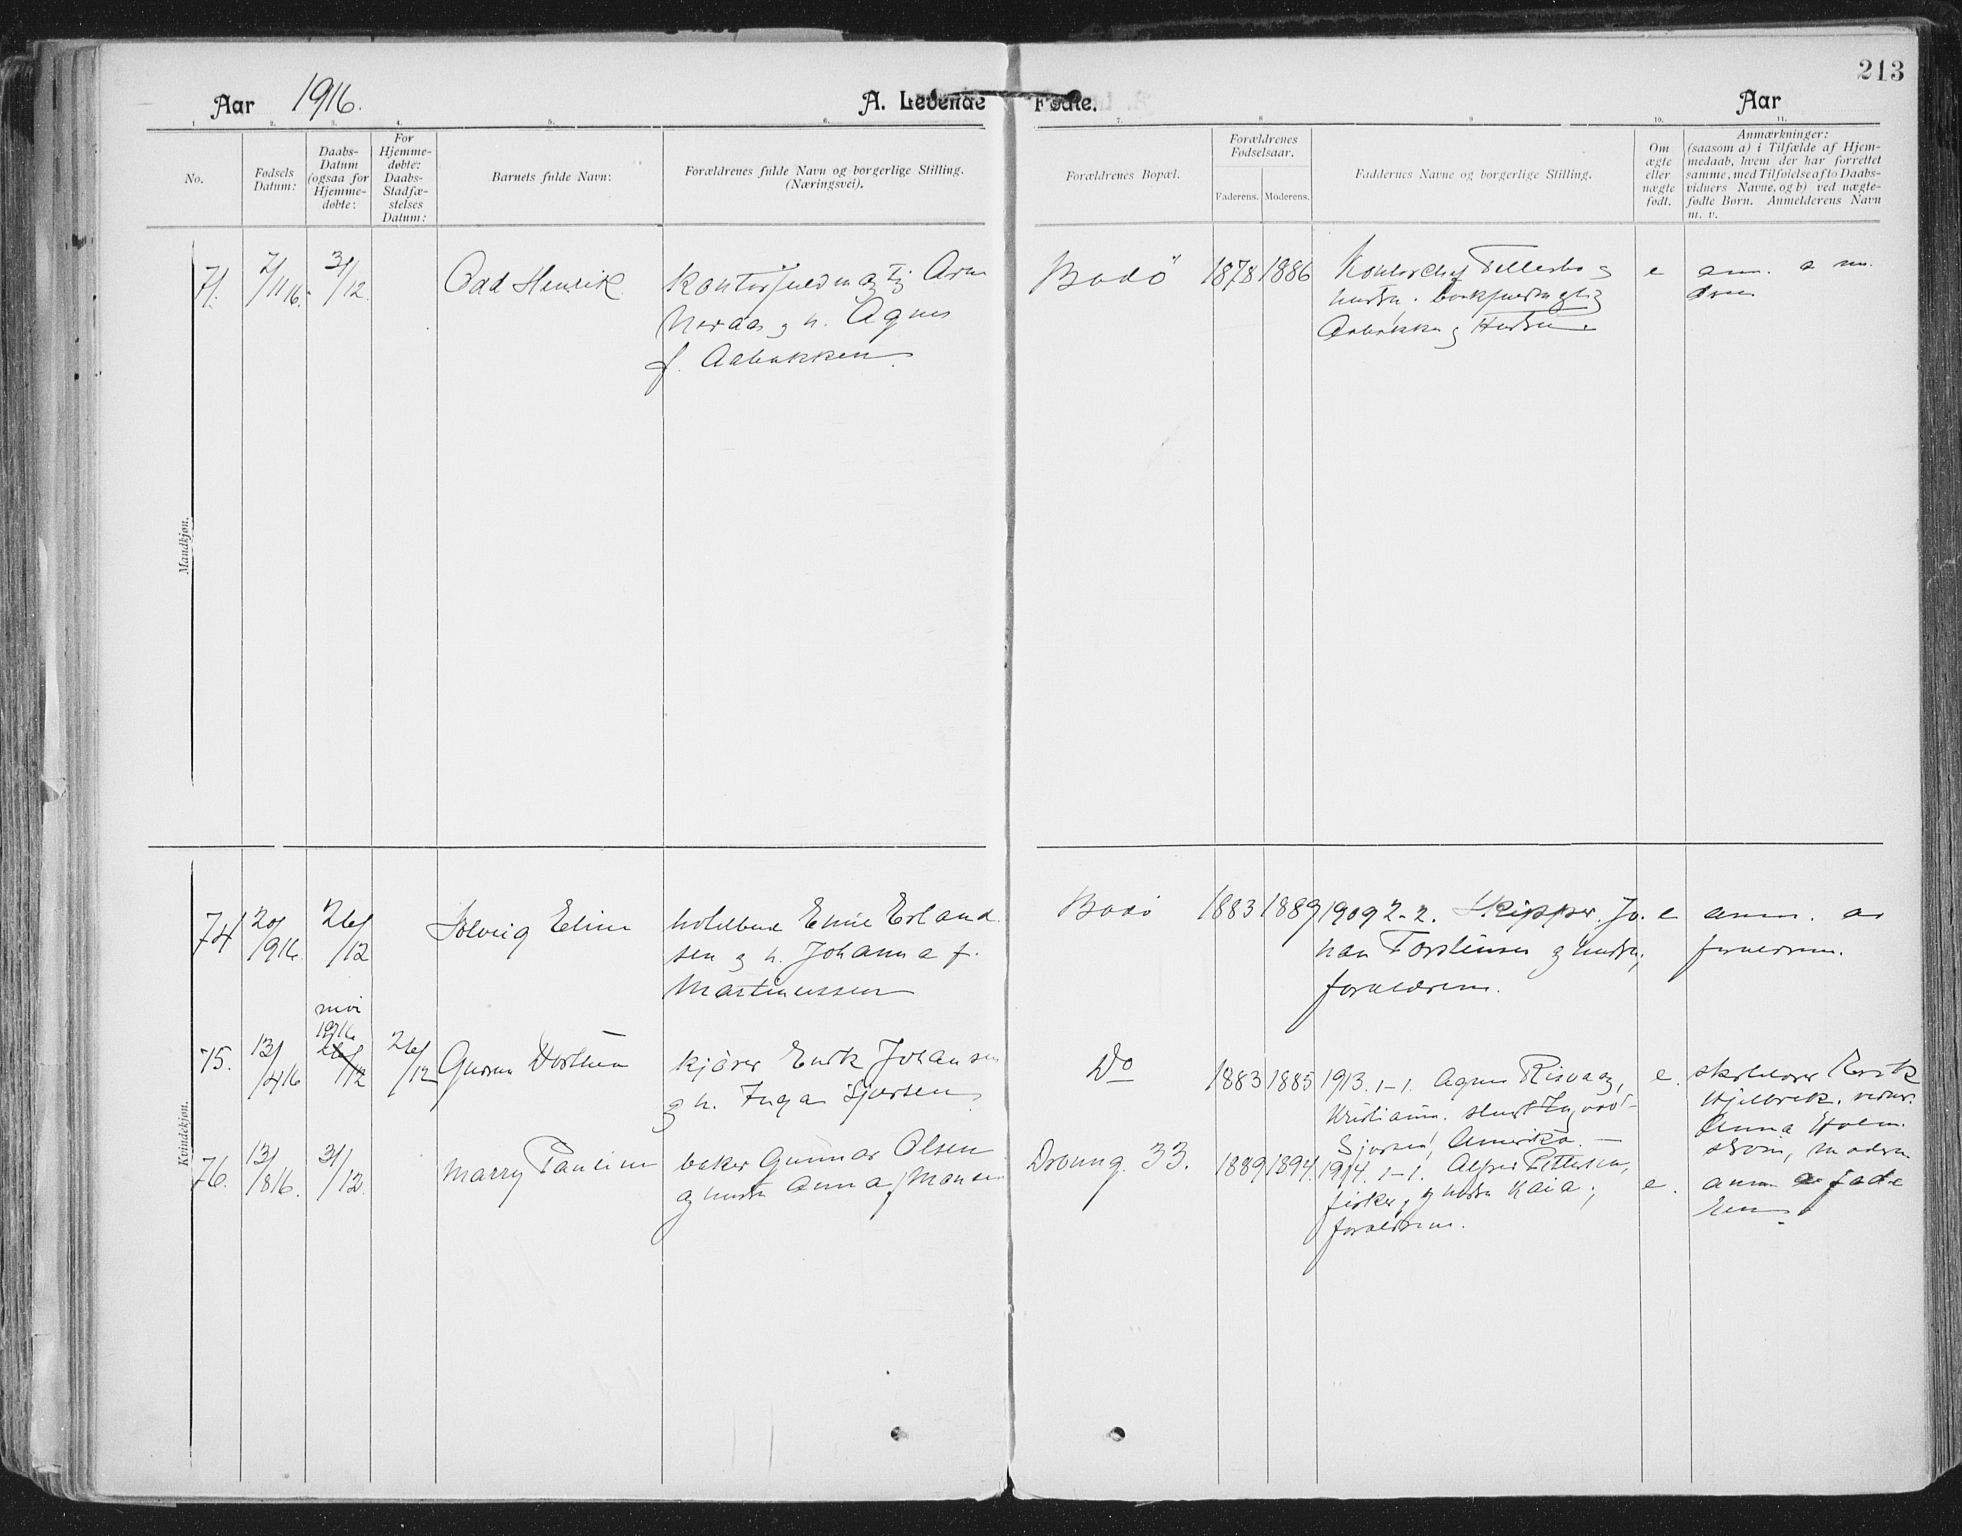 213
Aar 1916.
A. Levende Fødte.
Aar
1. 2. 3. 4. 5. 6. 7. 8 9 10. 11.
No.
Fødsels
Datum:
Daabs-
Datum
(ogsaa for
Hjemme-
døbte:
For
Hjemme-
døbte:
Daabs-
Stadfæ-
stelses
Datum:
Barnets fulde Navn:
Forældrenes fulde Navn og borgerlige Stilling.
(Næringsvei).
Forældrenes Bopæl.
Forældrenes
Fødselsaar.
Faderens. Moderens.
Faddernes Navne og borgerlige Stilling.
Om
ægte
eller
uægte
født.
Anmærkninger:
(saasom a) i Tilfælde af Hjem-
medaab, hvem der har forrettet
samme, med Tilføielse af to Daabs-
vidners Navne, og b) ved uægte-
fødte Børn. Anmelderens Navn
m. v.
Mandkjøn.
71.
2/11 16.
31/12.
Odd Henrik
Agnes
f. Aabakken
Bodö
1878 1886
Kontorchef
e
Kvindekjøn.
74
20/9 16.
26/12
Solveig Eline
Emil Erland
sen g h. Johanna f.
Martinussen
Bodö
1883 1889
1909 2-2. Skipper Jo.
han Torstensen g hustru,
forældrene.
e
anm. av
forældrene.
75.
13/4 16
mai
1916
26/12
26/12
Gudrun Dorthea
kjører Enok Johansen
g h. Inga Sjursen
Do
1883 1885
1913. 1-1. Agnes Risvaag,
Sjursen, Amerika. -
e.
Anna Holm.
strøm, modern
76.
13/8 16.
31/12.
Marry Pauline
baker Gunnar Olsen
og hustru Anna f Hansen
Dronng. 33.
1889 1894.
1914. 1-1. Alfred Pettersen,
fisker, g hustru Kaia;
forældrene.
e.
anm av fade
ren.